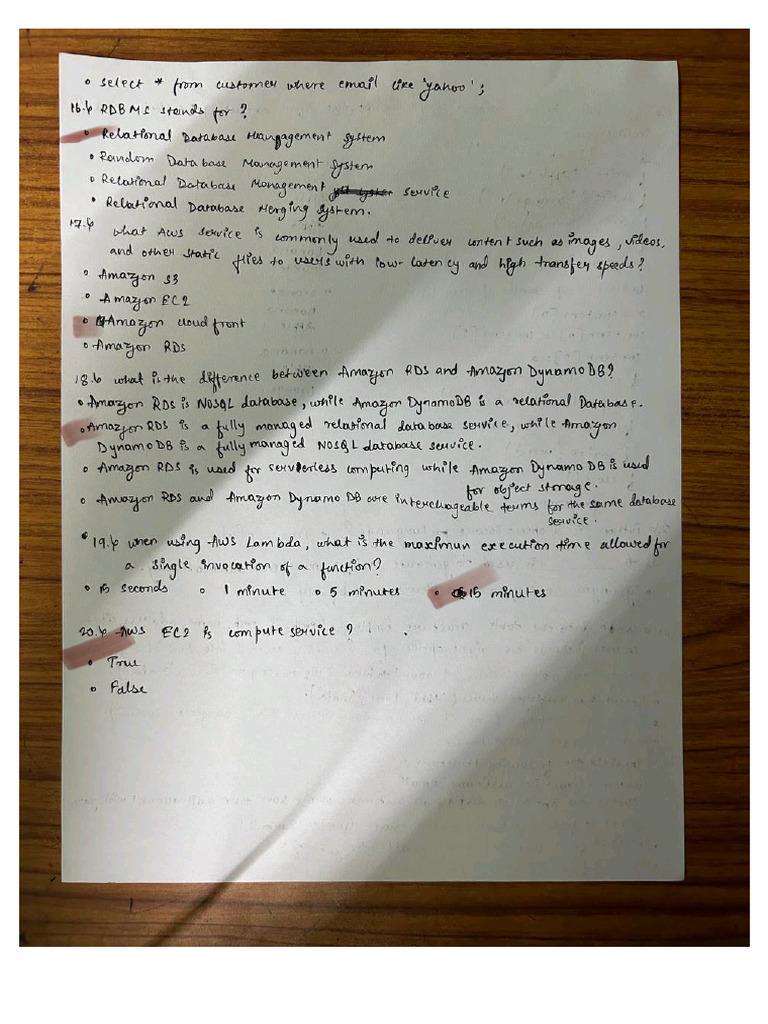 o select * from customer where email like 'yahoo';
16.b RDBMS stands for?
o Relational Database Mangagement System
o Random Database Management System
o Relational Database Management service
• Relational Database Merging System.
17.b what AWS service is commonly used to deliver content such as images, videos,
and other static files to users with low-latency and high transfer speeds?
o Amazon S3
o Amazon EC2
o Amazon cloud front
o Amazon RDS
18.b what is the difference between Amazon RDS and Amazon Dynamo DB?
o Amazon RDS is NOSQL database, while Amazon DynamoDB is a relational Database.
o Amazon RDS is a fully managed relational database service, while Amazon
DynamoDB is a fully managed NOSQL database service.
o Amazon RDS is used for serverless computing while Amazon Dynamo DB is used
for object storage.
o Amazon RDS and Amazon Dynamo DB are interchageable terms for the same database
service.
• 19.b when using AWS Lambda, what is the maximun execution time allowed for
a single invocation of a function?
o 15 seconds o 1 minute o 5 minutes o 15 minutes
20.b AWS EC2 is compute service? .
o True
o False